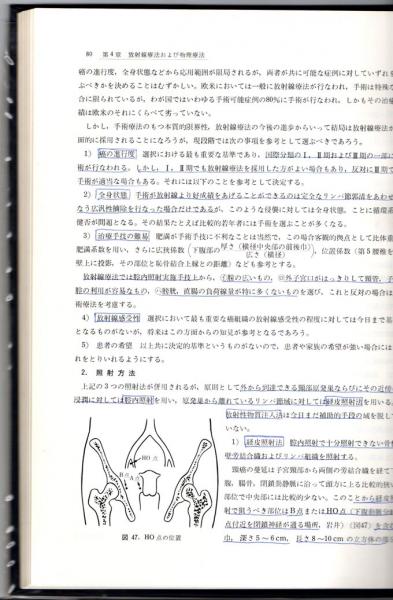 80 第4章 放射線療法および物理療法
癌の進行度,全身状態などから応用範囲が限局されるが,両者が共に可能な症例に対していずれを
ぶべきかを決めることはむずかしい。欧米においては一般に放射線療法が行なわれ,手術は特殊な
合に限られているが,わが国ではいわゆる手術可能症例の80%に手術が行なわれ,しかもその治療
績は欧米のそれにくらべて劣っていない。
しかし,手術療法のもつ本質的限界性,放射線療法の今後の進歩からいって結局は放射線療法が
面的に採用されることになろうが,現段階では次の事項を参考として選ぶべきであろう。
1) 癌の進行度 選択における最も重要な基準であり,国際分類のI,II期およびIII期の一部に
術が行なわれる。しかし,I,II期でも放射線療法を採用した方がよい場合もあり,反対にIII期で
手術が適当な場合もある。それには以下のことを参考として決定する。
2) 全身状態 手術が放射線より好成績をあげることができるのは完全なリンパ節郭清をあわせ
なう広汎性摘除を行なった場合だけであるが,このような侵襲に対しては全身状態,ことに循環系
健否が問題となる。その結果たとえば比較的若年者には手術を選ぶことが多くなる。
3) 治療手技の難易 肥満が手術手技に不利なことは当然で,この場合客観的拠点として比体重
肥満係数を用い,さらに広狭係数(下腹部の厚さ(横径中央部の前後巾)/広さ(横径)),位置係数(第5腰椎を
壁上に投影,その部位と恥骨結合上縁との距離)なども参考とする。
放射線療法では腔内照射実施手技上から,①腟の広いもの,②外子宮口がはっきりして頸管,子
腔の利用が容易なもの,③膀胱,直腸の負荷線量が特に多くないものを選び,これと反対の場合は
術療法を考慮する。
4) 放射線感受性 選択において最も重要な癌組織の放射線感受性の程度に対しては今日まで基
となるものがないが,将来はこの方面からの知見が参考となるであろう。
5) 患者の希望 以上共に決定的基準というものがないので,患者や家族の希望が強い場合には
れをとりいれるようにする。
2. 照射方法
上記の3つの照射法が併用されるが,原則として外から到達できる頸部原発巣ならびにその近傍
浸潤に対しては腔内照射を用い,原発巣から離れているリンパ節域に対しては経皮照射法を用いる
放射性物質注入法は今日まだ補助的手段の域を脱して
いない。
1) 経皮照射法 腔内照射で十分照射できない骨
壁旁結合織およびリンパ組織を照射する。
頸癌の蔓延は子宮頸部から両側の旁結合織を経て
腹,腸骨,閉鎖動静脈に沿って頭方に上る比較的狭い
部位で中央部には比較的少ない。このことから経皮照
射で狙うべき部位はB点またはHO点(下腹動脈分岐
点付近を閉鎖神経が通る場所,岩井)(図47)を含む
巾,深さ5〜6cm,長さ8〜10cmの立方体の部
HO点
B点
A点
図 47. HO点の位置